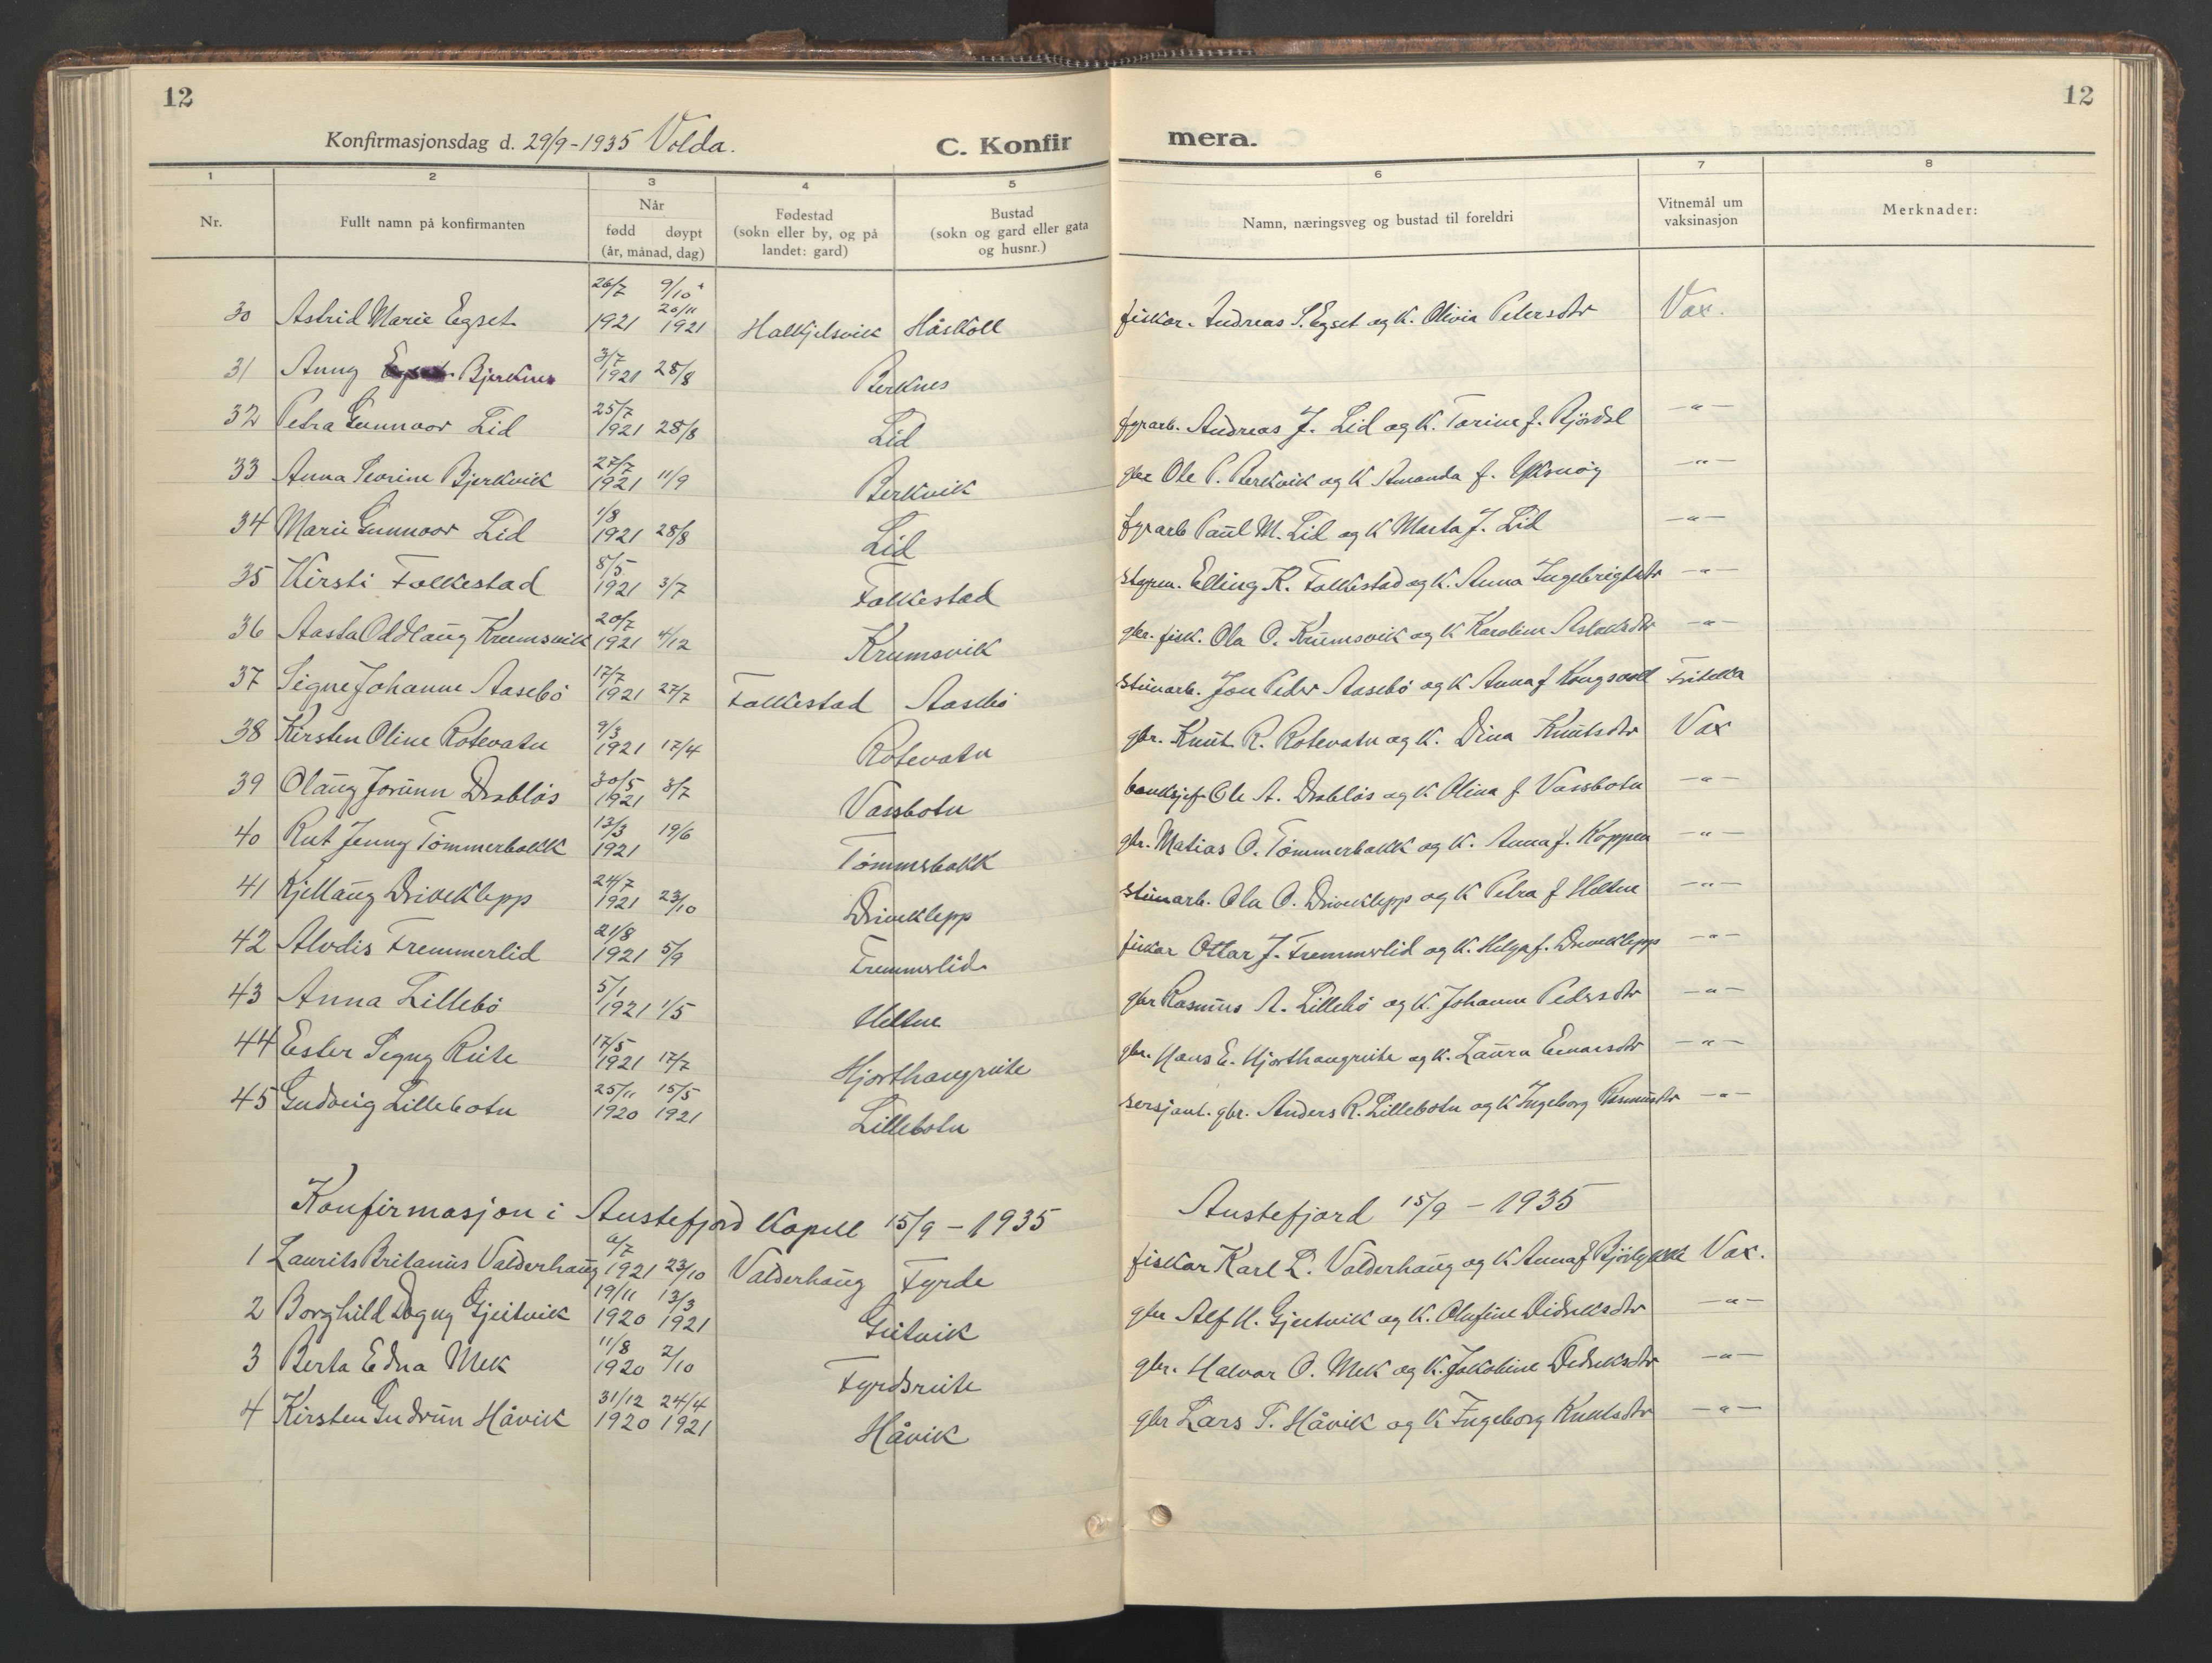 12
12
Konfirmasjonsdag d. 29/9-1935 Volda.
C. Konfir mera.
1 2 3 4 5 6 7 8
Nr.
Fullt namn på konfirmanten
Når
født døypt
(år, månad, dag)
Fødestad
(sokn eller by, og på
landet: gard)
Bustad
(sokn og gard eller gata
og husnr.)
Namn, næringsveg og bustad til foreldri
Vitnemål um
vaksinasjon
Merknader:
30 Astrid Marie Egset 26/7 1921 9/10 20/11 1921 Halkjelsvik Håskoll fiskar. Andreas S. Egset og k. Olivia Petersdtr Vax.
31 Anny Bjerknes 3/7 1921 28/8 Berknes
32 Petra Gunnvor Lid 25/7 1921 28/8 Lid fyrarb. Andreas J. Lid og k. Torine f. Bjørdal -"-
33 Anna Severine Bjerkvik 27/7 1921 11/9 Berkvik gbr Ole P. Berkvik og k Amanda f. Yksnøy -"-
34 Marie Gunnvor Lid 1/8 1921 28/8 Lid fyrarb Paul M. Lid og k Marta J. Lid -"-
35 Kirsti Folkestad 8/5 1921 3/7 Folkestad Elling K. Folkestad og k. Anna Ingebrigtsdtr -"-
36 Aasta Oddlaug Krumsvik 20/7 1921 4/12 Krumsvik gbr. fisk. Ola O. Krumsvik og k Karoline Aslaksdtr -"-
37 Signe Johanne Aasebø 17/7 1921 27/7 Folkestad Aasebø Jon Peder Aasebø og k Anna f Kongsvoll
38 Kirsten Oline Rotevatn 9/3 1921 17/4 Rotevatn gbr. Knut R. Rotevatn og k. Dina Knutsdtr Vax
39 Olaug Jorunn Drabløs 30/5 1921 3/7 Vassbotn banksjef Ole A. Drabløs og k Olina f Vassbotn -"-
40 Rut Jenny Tømmerbakk 13/3 1921 19/6 Tømmerbakk gbr. Matias O. Tømmerbakk og k. Anna f. Koppen -"-
41 Kjellaug Driveklepp 24/7 1921 23/10 Driveklepp Ola O. Driveklepp og k Petra f Heltne -"-
42 Alvdis Fremmerlid 21/8 1921 5/9 Fremmerlid fiskar Ottar J. Fremmerlid og k. Helga f. Driveklepp -"-
43 Anna Lillebø 5/1 1921 1/5 Heltne gbr Rasmus A. Lillebø og k. Johanne Pedersdtr -"-
44 Ester Signy Riite 17/5 1921 17/7 Hjorthaugriite gbr. Hans E. Hjorthaugriite og k. Laura Einarsdtr -"-
45 Gudveig Lillebotn 25/11 1920 15/5 1921 Lillebotn sersjant. gbr. Anders R. Lillebotn og k Ingeborg Rasmusdtr -"-
Konfirmasjon i Austefjord Kapell 15/9 - 1935 Austefjord 15/9 - 1935
1 Laurits Britanus Valderhaug 1921 23/10 Valderhaug Fyrde fiskar Karl L. Valderhaug og k Anna f Bjørlykke Vax.
2 Borghild Dagny Gjeitvik 19/11 1920 13/3 1921 Geitvik gbr Alf H. Gjeitvik og k. Olufine Didriksdtr -"-
3 Berta Edna Mek 11/8 1920 2/10 Fyrdsriite gbr. Halvar O. Mek og k. Jakobine Dedriksdtr -"-
4 Kirsten Gudrun Håvik 31/12 1920 24/4 1921 Håvik gbr Lars T. Håvik og k Ingeborg Knutsdtr -"-